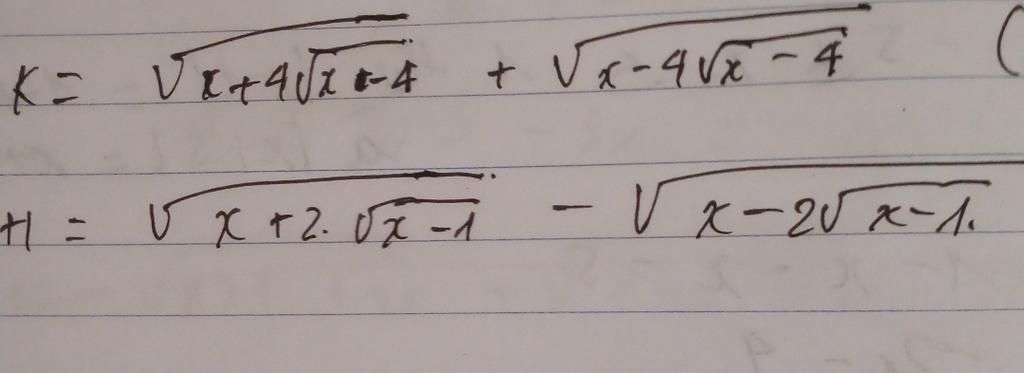 K = √(x+4√(x-4)) + √(x-4√(x-4)) (
H = √(x+2.√(x-1)) - √(x-2√(x-1.))